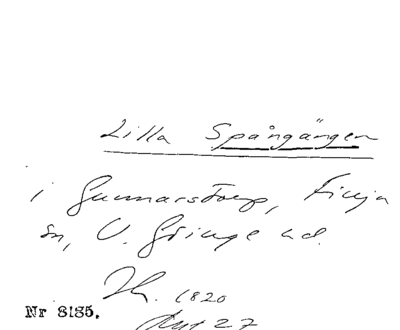 Lilla Spångängen
i Gunnarstorp, Finja
sn, V. Göinge hd.
Kk. 1820
Akt 27
Nr 8135.